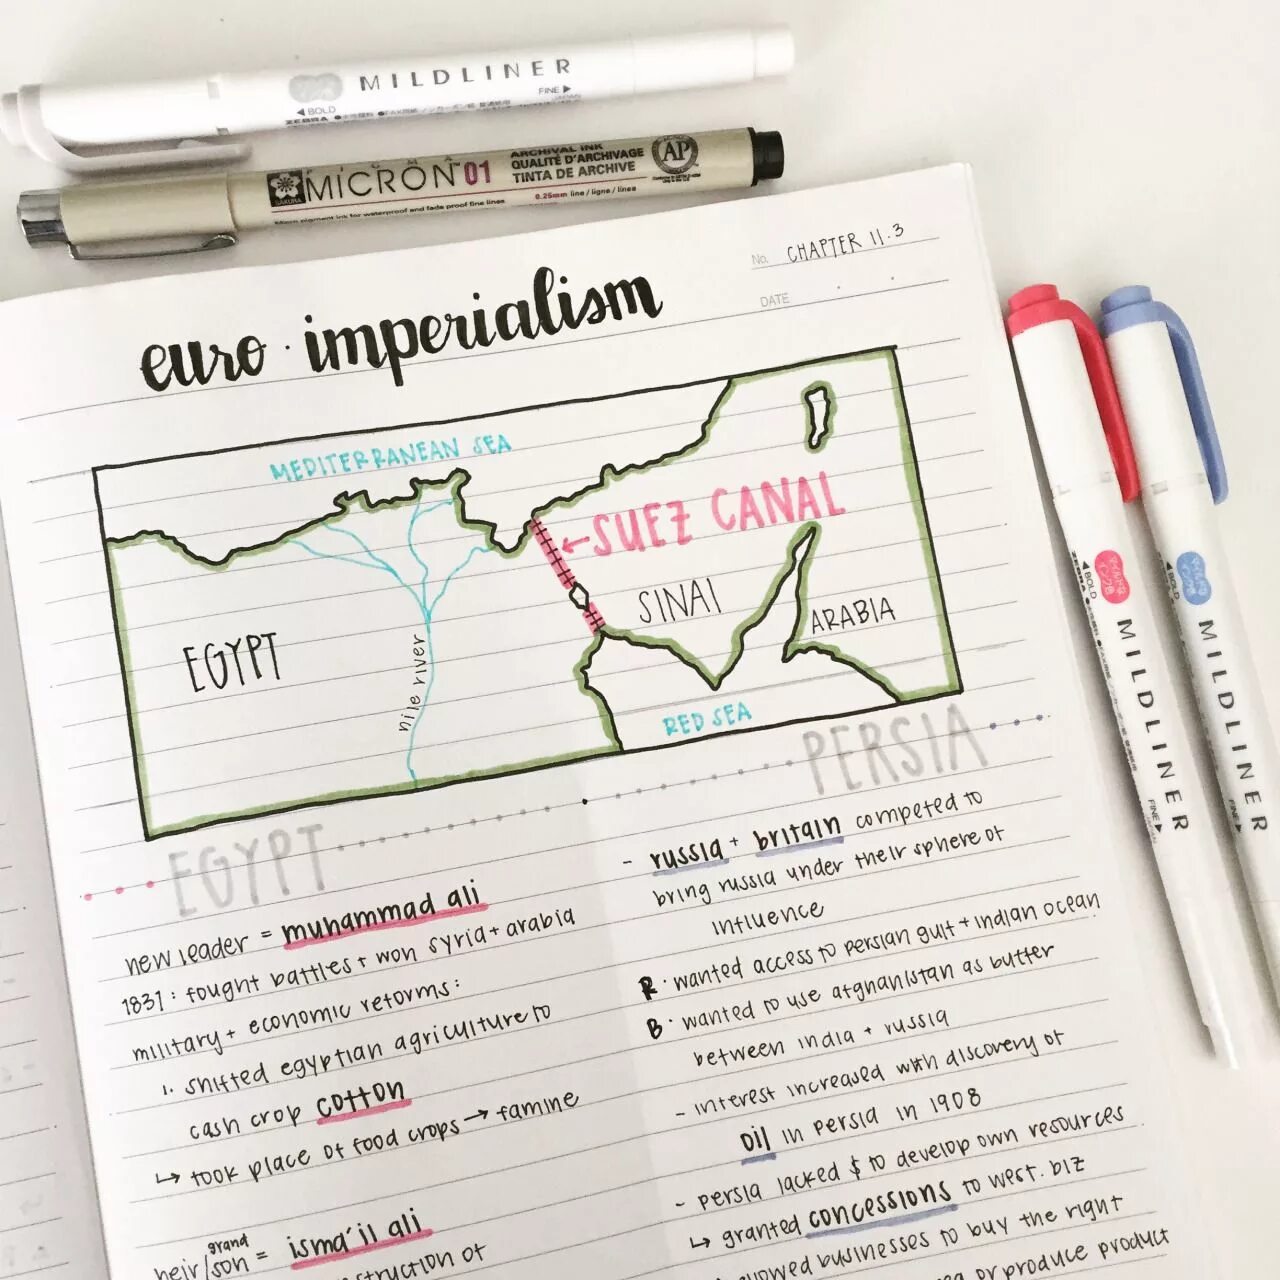 MILDLINER
◄BOLD FINE►
ZEBRA
MICRON™ 01
SAKURA
ARCHIVAL INK
QUALITÉ D'ARCHIVAGE
TINTA DE ARCHIVE
AP
0.25mm line / ligne / línea
Micro pigment ink for waterproof and fade proof fine lines
No. CHAPTER 11.3
DATE
euro · imperialism
MEDITERRANEAN SEA
←SUEZ CANAL
SINAI
ARABIA
EGYPT
nile river
RED SEA
EGYPT
new leader = muhammad ali
1831: fought battles + won syria + arabia
military + economic reforms:
1. shifted egyptian agriculture to
cash crop cotton
↳ took place of food crops → famine
heir/grandson = isma'il ali
struction of
PERSIA
- russia + britain competed to
bring russia under their sphere of
influence
R · wanted access to persian gulf + indian ocean
B · wanted to use afghanistan as butter
between india + russia
- interest increased with discovery of
oil in persia in 1908
- persia lacked $ to develop own resources
↳ granted concessions to west. biz
owed businesses to buy the right
or produce product
◄BOLD
ZEBRA
MILDLINER
FINE►
◄BOLD
ZEBRA
MILDLINER
FINE►